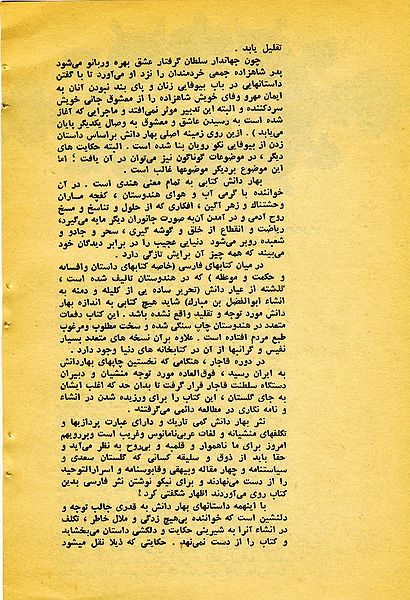 تقلیل یابد .
چون جهاندار سلطان گرفتار عشق بهره وربانو می‌شود
پدر شاهزاده جمعی خردمندان را نزد او می‌آورد تا با گفتن
داستانهایی در باب بیوفایی زنان و پای بند نبودن آنان به
ایمان مهرو وفای خویش شاهزاده را از معشوق جانی خویش
سردکننده و البته این تدبیر موثر نمی‌افتد و ماجرایی که آغاز
شده است به رسیدن عاشق و معشوق به وصال یکدیگر پایان
می‌یابد) . ازین روی زمینه اصلی بهار دانش براساس داستان
زدن از بیوفایی نکو رویان بنا شده . البته حکایت های
دیگر ، در موضوعات گوناگون نیز می‌توان در آن یافت ؛ اما
این موضوع بردیگر موضوعها غالب است .
بهار دانش کتابی به تمام معنی هندی است . در آن
خواننده با گرمی آب و هوای هندوستان ، کفچه ماران
وحشتناك و زهر آگین ، افکاری که از حلول و تناسخ و مسخ
روح آدمی و در آمدن آن‌به صورت جانوران دیگر مایه می‌گیرد،
ریاضت و انقطاع از خلق و گوشه گیری ، سحر و جادو و
شعبده روبر می‌شود دنیایی عجیب را در برابر دیدگان خود
می‌بیند که همه چیز آن برایش تازگی دارد .
در میان کتابهای فارسی (خاصه کتابهای داستان وافسانه
و حکمت و موعظه ) که در هندوستان تالیف شده است ،
گذشته از عیار دانش (تحریر ساده یی از کلیله و دمنه به
انشاء ابوالفضل بن مبارك) شاید هیچ کتابی به اندازه بهار
دانش مورد توجه و تقلید واقع نشده باشد . این کتاب دفعات
متعدد در هندوستان چاپ سنگی شده و سخت مطلوب ومرغوب
طبع مردم افتاده است . علاوه برآن نسخه های متعدد بسیار
نفیس و گرانبها از آن در کتابخانه های دنیا وجود دارد .
در دوره قاجار ، هنگامی که نخستین چاپهای بهاردانش
به ایران رسید ، فوق‌العاده مورد توجه منشیان و دبیران
دستگاه سلطنت قاجار قرار گرفت تا بدان حد که اغلب ایشان
به جای گلستان ، این کتاب را برای ورزیده شدن در انشاء
و نامه نگاری در مطالعه دائمی می‌گرفتند .
نثر بهار دانش کمی تاريك و دارای عبارت پردازیها و
تکلفهای منشیانه و لغات عربی‌نامانوس وغریب است وبرویهم
امروز برای ما ناهموار و قلمبه و بی‌روح به نظر می‌آید و
حقا باید از ذوق و سلیقه کسانی که گلستان سعدی و
سیاستنامه و چهار مقاله وبیهقی وقابوسنامه و اسرارالتوحید
را از دست می‌نهادند و برای نیکو نوشتن نثر فارسی بدین
کتاب روی می‌آوردند اظهار شگفتی کرد !
با اینهمه داستانهای بهار دانش به قدری جالب توجه و
دلنشین است که خواننده بی‌هیچ زدگی و ملال خاطر ، تکلف
در انشاء آنرا به شیرینی حکایت و دلکشی داستان می‌بخشاید
و کتاب را از دست نمی‌نهد . حکایتی که ذیلا نقل میشود